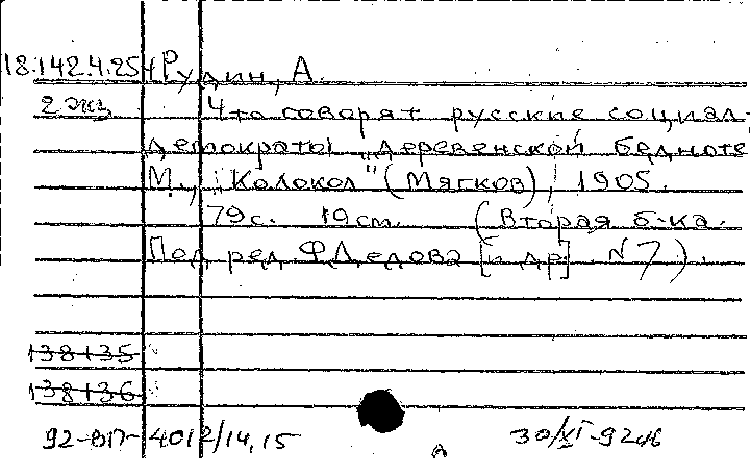 18.142.4.254 Рудин, А.
2 экз Что говорят русские социал-
демократы „деревенской бедноте
М., „Колокол" (Мягков), 1905.
79 с. 19 см. (Вторая б-ка.
Под ред. Ф. Дедова [и др] N 7).
138135
138136
92-ВП-4012/14,15 30/XI-92